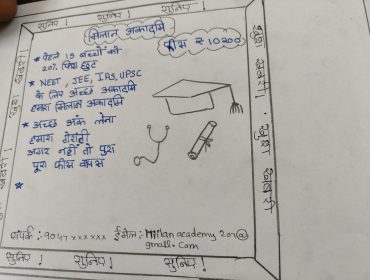 सुनिए! सुनिए! सुनिए!
मिलान अकादमि
फीस ₹10200
* पहले 15 बच्चों को
20% फिस छूट
* NEET, JEE, IAS, UPSC
के लिए अच्छे अकादमि
हमारा मिलान अकादमि
* अच्छे अंक लेना
हमारा गेरंटी
अगर नहीं तो पुरा
पूरा फीस वापस
*
संपर्क:-9047xxxxxx ईमेल:-Milan academy 2on@
gmail.com
सुनिए! सुनिए! सुनिए!
खुश खबरी! खुश खबरी
खुश खबरी!